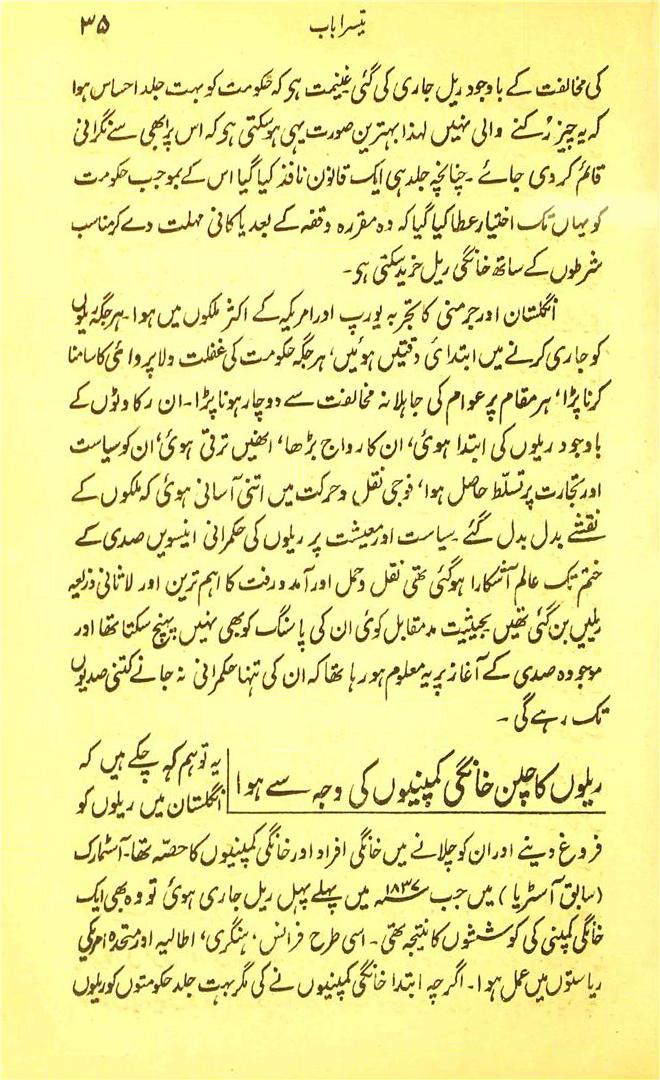 تیسرا باب ۳۵
کی مخالفت کے باوجود ریل جاری کی گئی غنیمت ہی کہ حکومت کو بہت جلد احساس ہوا
کہ یہ چیز رُکنے والی نہیں لہذا بہترین صورت یہی ہو سکتی ہی کہ اس پر ابھی سے نگرانی
قائم کر دی جائے ۔ چنانچہ جلد ہی ایک قانون نافذ کیا گیا اس کے بموجب حکومت
کو یہاں تک اختیار عطا کیا گیا کہ وہ مقررہ وقفہ کے بعد یا کافی مہلت دے کر مناسب
شرطوں کے ساتھ خانگی ریل خرید سکتی ہی۔
انگلستان اور جرمنی کا تجربہ یورپ اور امریکہ کے اکثر ملکوں میں ہوا۔ ہر جگہ ریلوں
کو جاری کرنے میں ابتدائی دقتیں ہوئیں، ہر جگہ حکومت کی غفلت و لاپروائی کا سامنا
کرنا پڑا، ہر مقام پر عوام کی جاہلانہ مخالفت سے دوچار ہونا پڑا۔ ان رکاوٹوں کے
باوجود ریلوں کی ابتدا ہوئی، ان کا رواج بڑھا، انھیں ترقی ہوئی، ان کو سیاست
اور تجارت پر تسلّط حاصل ہوا، فوجی نقل و حرکت میں اتنی آسانی ہوئی کہ ملکوں کے
نقشے بدل بدل گئے ۔ سیاست اور معیشت پر ریلوں کی حکمرانی انیسویں صدی کے
ختم تک عالم آشکارا ہو گئی تھی نقل و حمل اور آمد و رفت کا اہم ترین اور لاثانی ذریعہ
ریلیں بن گئی تھیں بحیثیت مد مقابل کوئی ان کی پاسنگ کو بھی نہیں پہنچ سکتا تھا اور
موجودہ صدی کے آغاز پر یہ معلوم ہو رہا تھا کہ ان کی تنہا حکمرانی نہ جانے کتنی صدیوں
تک رہے گی ۔
ریلوں کا چلن خانگی کمپنیوں کی وجہ سے ہوا
یہ تو ہم کہہ چکے ہیں کہ
انگلستان میں ریلوں کو
فروغ دینے اور ان کو چلانے میں خانگی افراد اور خانگی کمپنیوں کا حصّہ تھا۔ آسٹمارک
(سابق آسٹریا) میں جب ۱۸۳۷ء میں پہلے پہل ریل جاری ہوئی تو وہ بھی ایک
خانگی کمپنی کی کوششوں کا نتیجہ تھی ۔ اسی طرح فرانس، ہنگری، اطالیہ اور متحدہ امریکی
ریاستوں میں عمل ہوا۔ اگرچہ ابتدا خانگی کمپنیوں نے کی مگر بہت جلد حکومتوں کو ریلوں